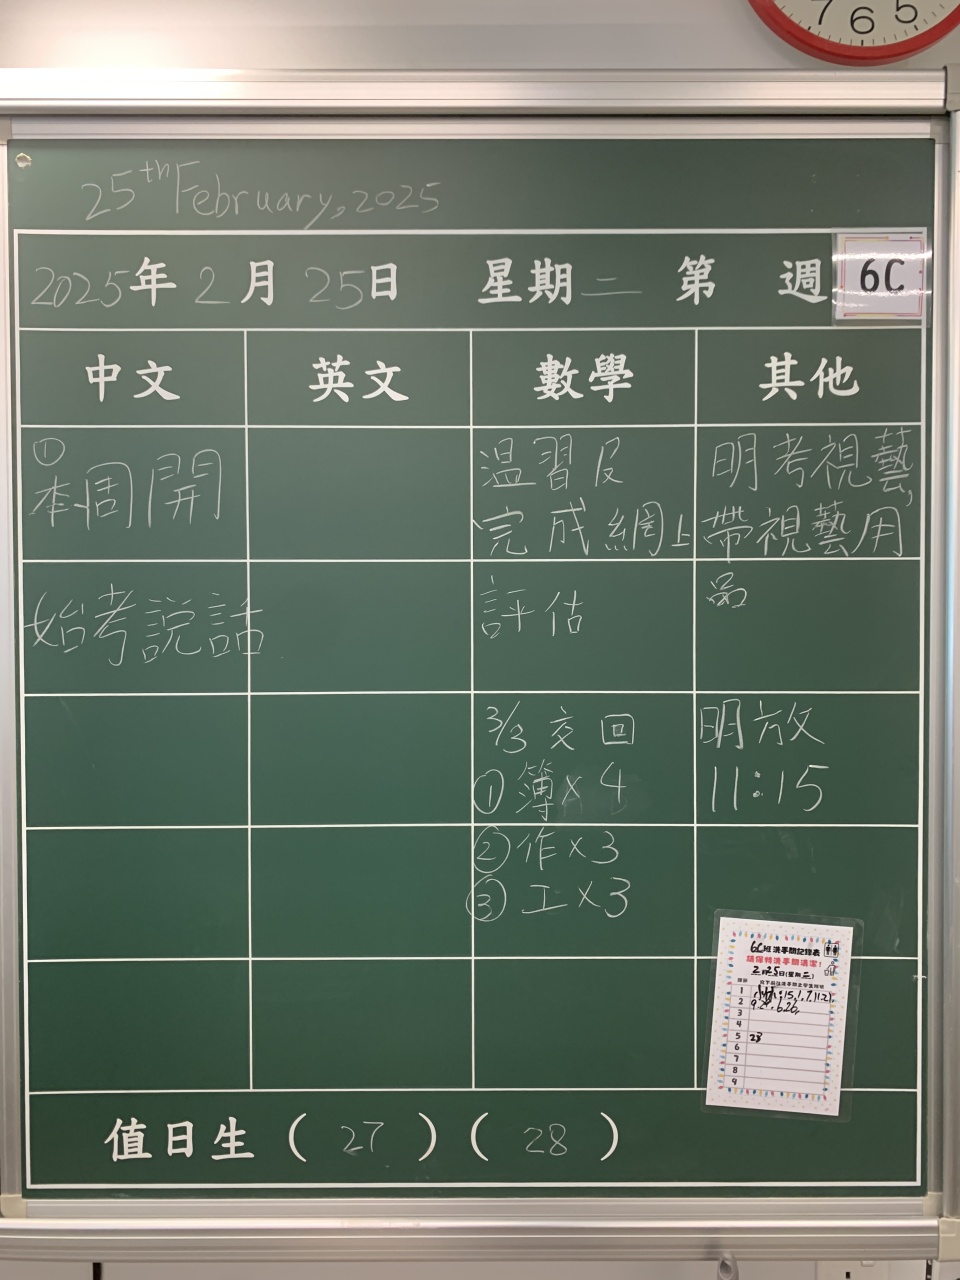 7 6 5
25th February, 2025
2025年 2月 25日 星期二 第 週 6C
中文 英文 數學 其他
①
本周開
始考説話
温習及
完成網上
評估
3/3 交回
①簿×4
②作×3
③工×3
明考視藝,
帶視藝用
品
明放
11:15
6C班洗手間記錄表
請保持洗手間清潔!
2月25日(星期二)
1
2
3
4
5 23
6
7
8
9
值日生 ( 27 ) ( 28 )